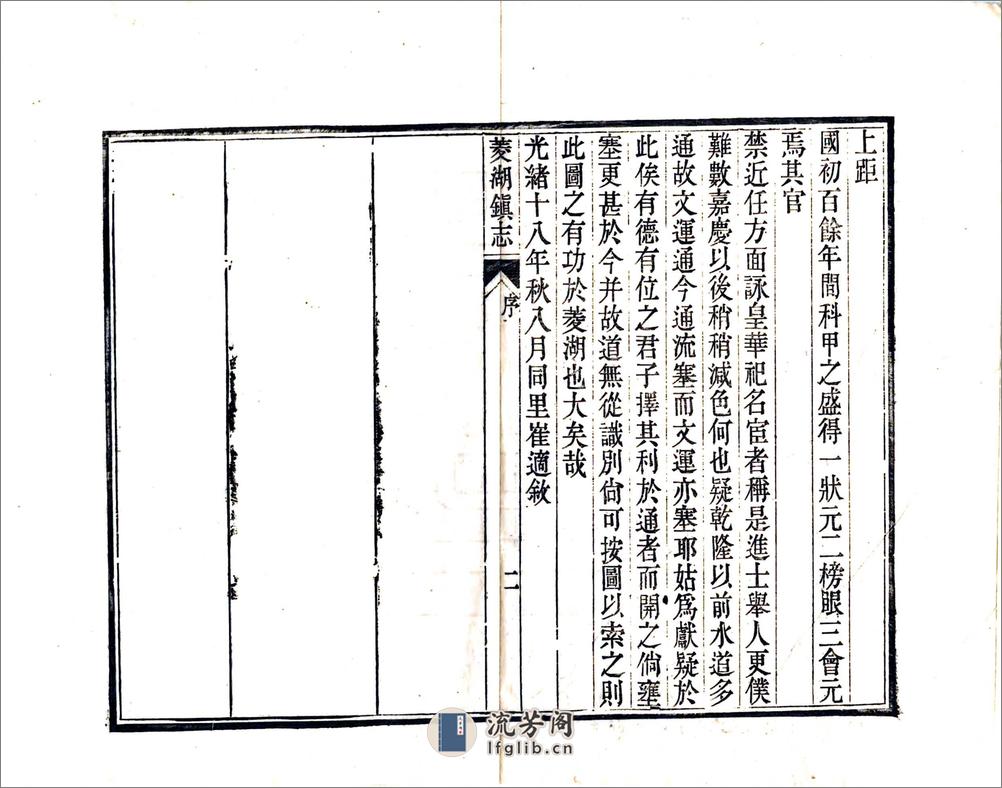 上距
國初百餘年間科甲之盛得一狀元二榜眼三會元
焉其官
禁近任方面詠皇華祀名宦者稱是進士舉人更僕
難數嘉慶以後稍稍減色何也疑乾隆以前水道多
通故文運通今通流塞而文運亦塞耶姑爲獻疑於
此俟有德有位之君子擇其利於通者而開之倘壅
塞更甚於今并故道無從識別尙可按圖以索之則
此圖之有功於菱湖也大矣哉
光緒十八年秋八月同里崔適敘
菱湖鎭志
序
二
流芳阁
lfglib.cn